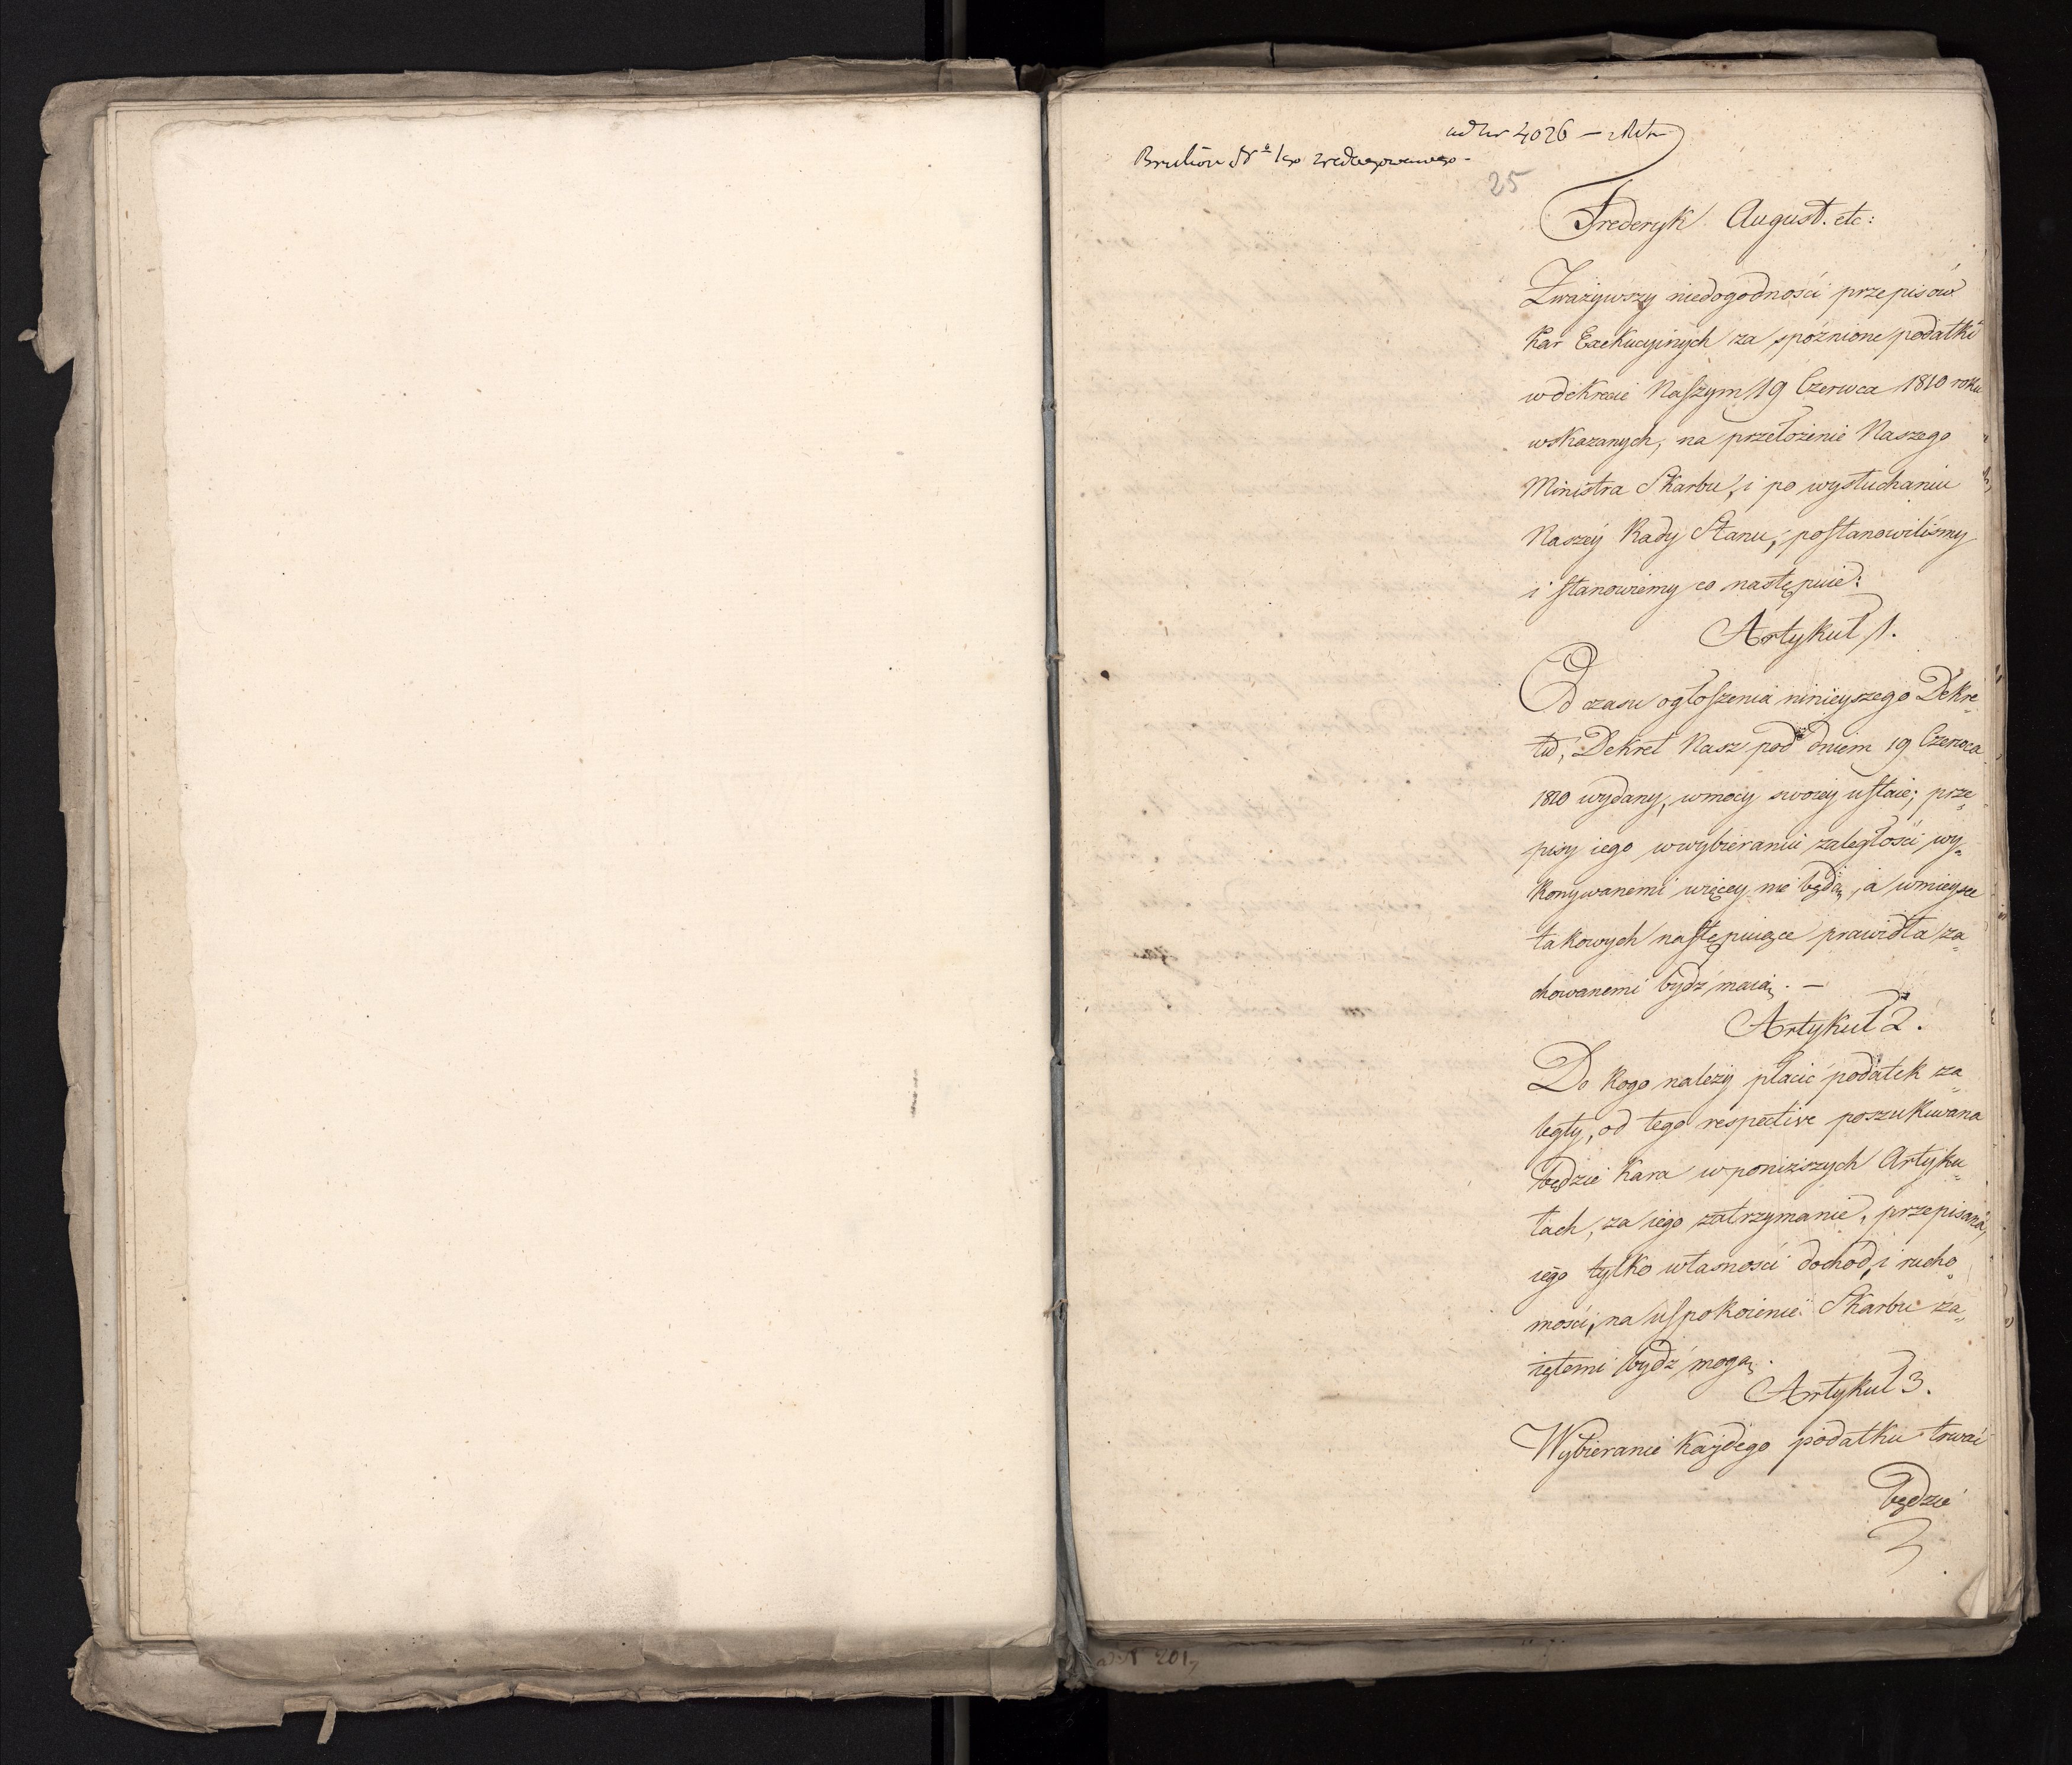 ad nr 4026 —
Brulion Nr 1go zredagowanego -
25
Frederyk August. etc:
Zważywszy niedogodności przepisów
Kar Exekucyinych za spóźnione podatki
w dekrecie Naszym 19 Czerwca 1810 roku
wskazanych, na przełożenie Naszego
Ministra Skarbu, i po wysłuchaniu
Naszéy Rady Stanu, postanowiliśmy
i stanowiemy co następuie:
Artykuł 1.
Od czasu ogłoszenia ninieyszego Dekre„
tu, Dekret Nasz pod dniem 19 Czerwca
1810 wydany, w mocy swoiey ustaie; prze„
pisy iego w wybieraniu zaległości wy„
konywanemi więcey nie będą, a w mieysce
takowych następuiące prawidła za„
chowanemi bydź maią. —
Artykuł 2.
Do kogo należy płacić podatek za„
legły, od tego respective poszukiwana
będzie kara w poniższych Artyku„
łach, za iego zatrzymanie, przepisana,
iego tylko własności dochód, i rucho„
mości, na uspokoienie Skarbu za„
iętemi bydź mogą.
Artykuł 3.
Wybieranie każdego podatku trwać
będzie
ad N 201